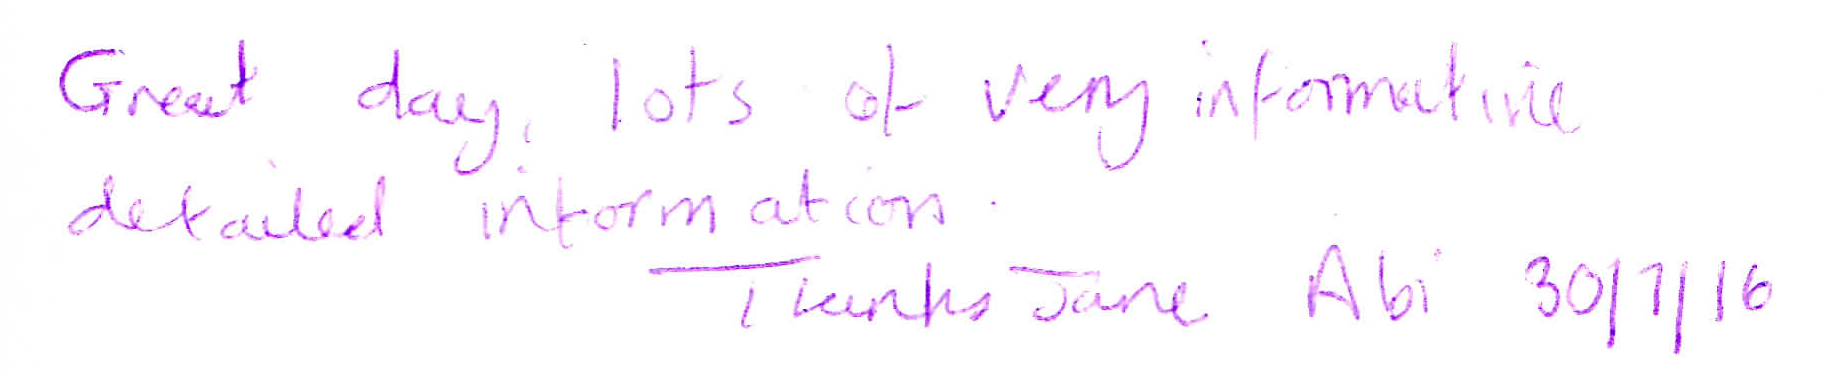 Great day, lots of very informative
detailed information.
Thanks Jane Abi 30/7/16